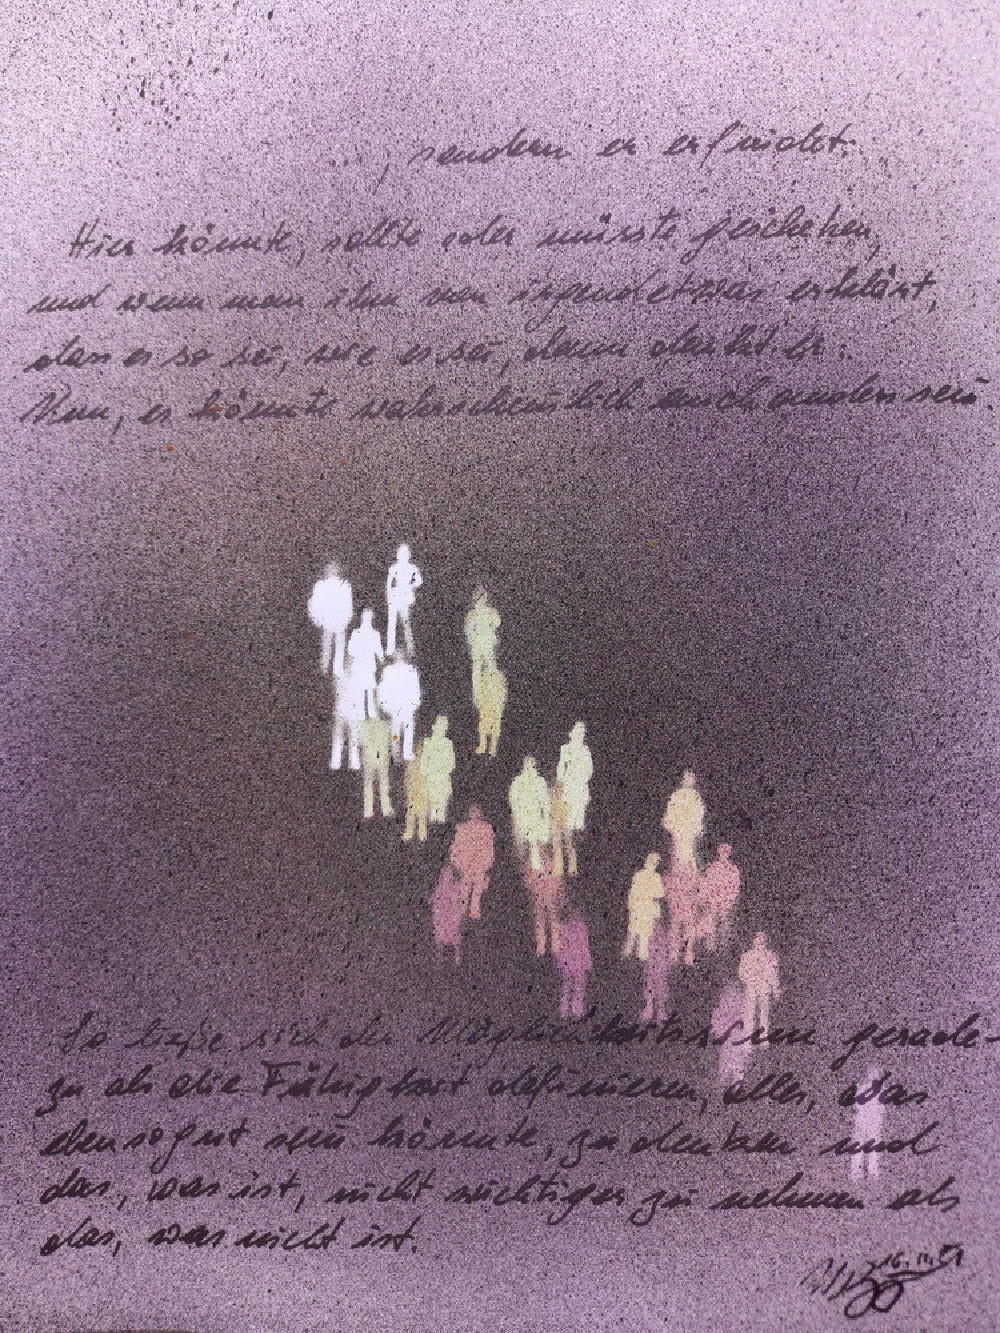 , sondern er erfindet:
Hier könnte, sollte oder müsste geschehen,
und wenn man ihm von irgendetwas erklärt,
dass es so sei, wie es sei, dann denkt er:
Nun, es könnte wahrscheinlich auch anders sein
So ließe sich der Möglichkeitssinn gerade-
zu als die Fähigkeit definieren, alles, was
ebensogut sein könnte, zu denken und
das, was ist, nicht wichtiger zu nehmen als
das, was nicht ist.